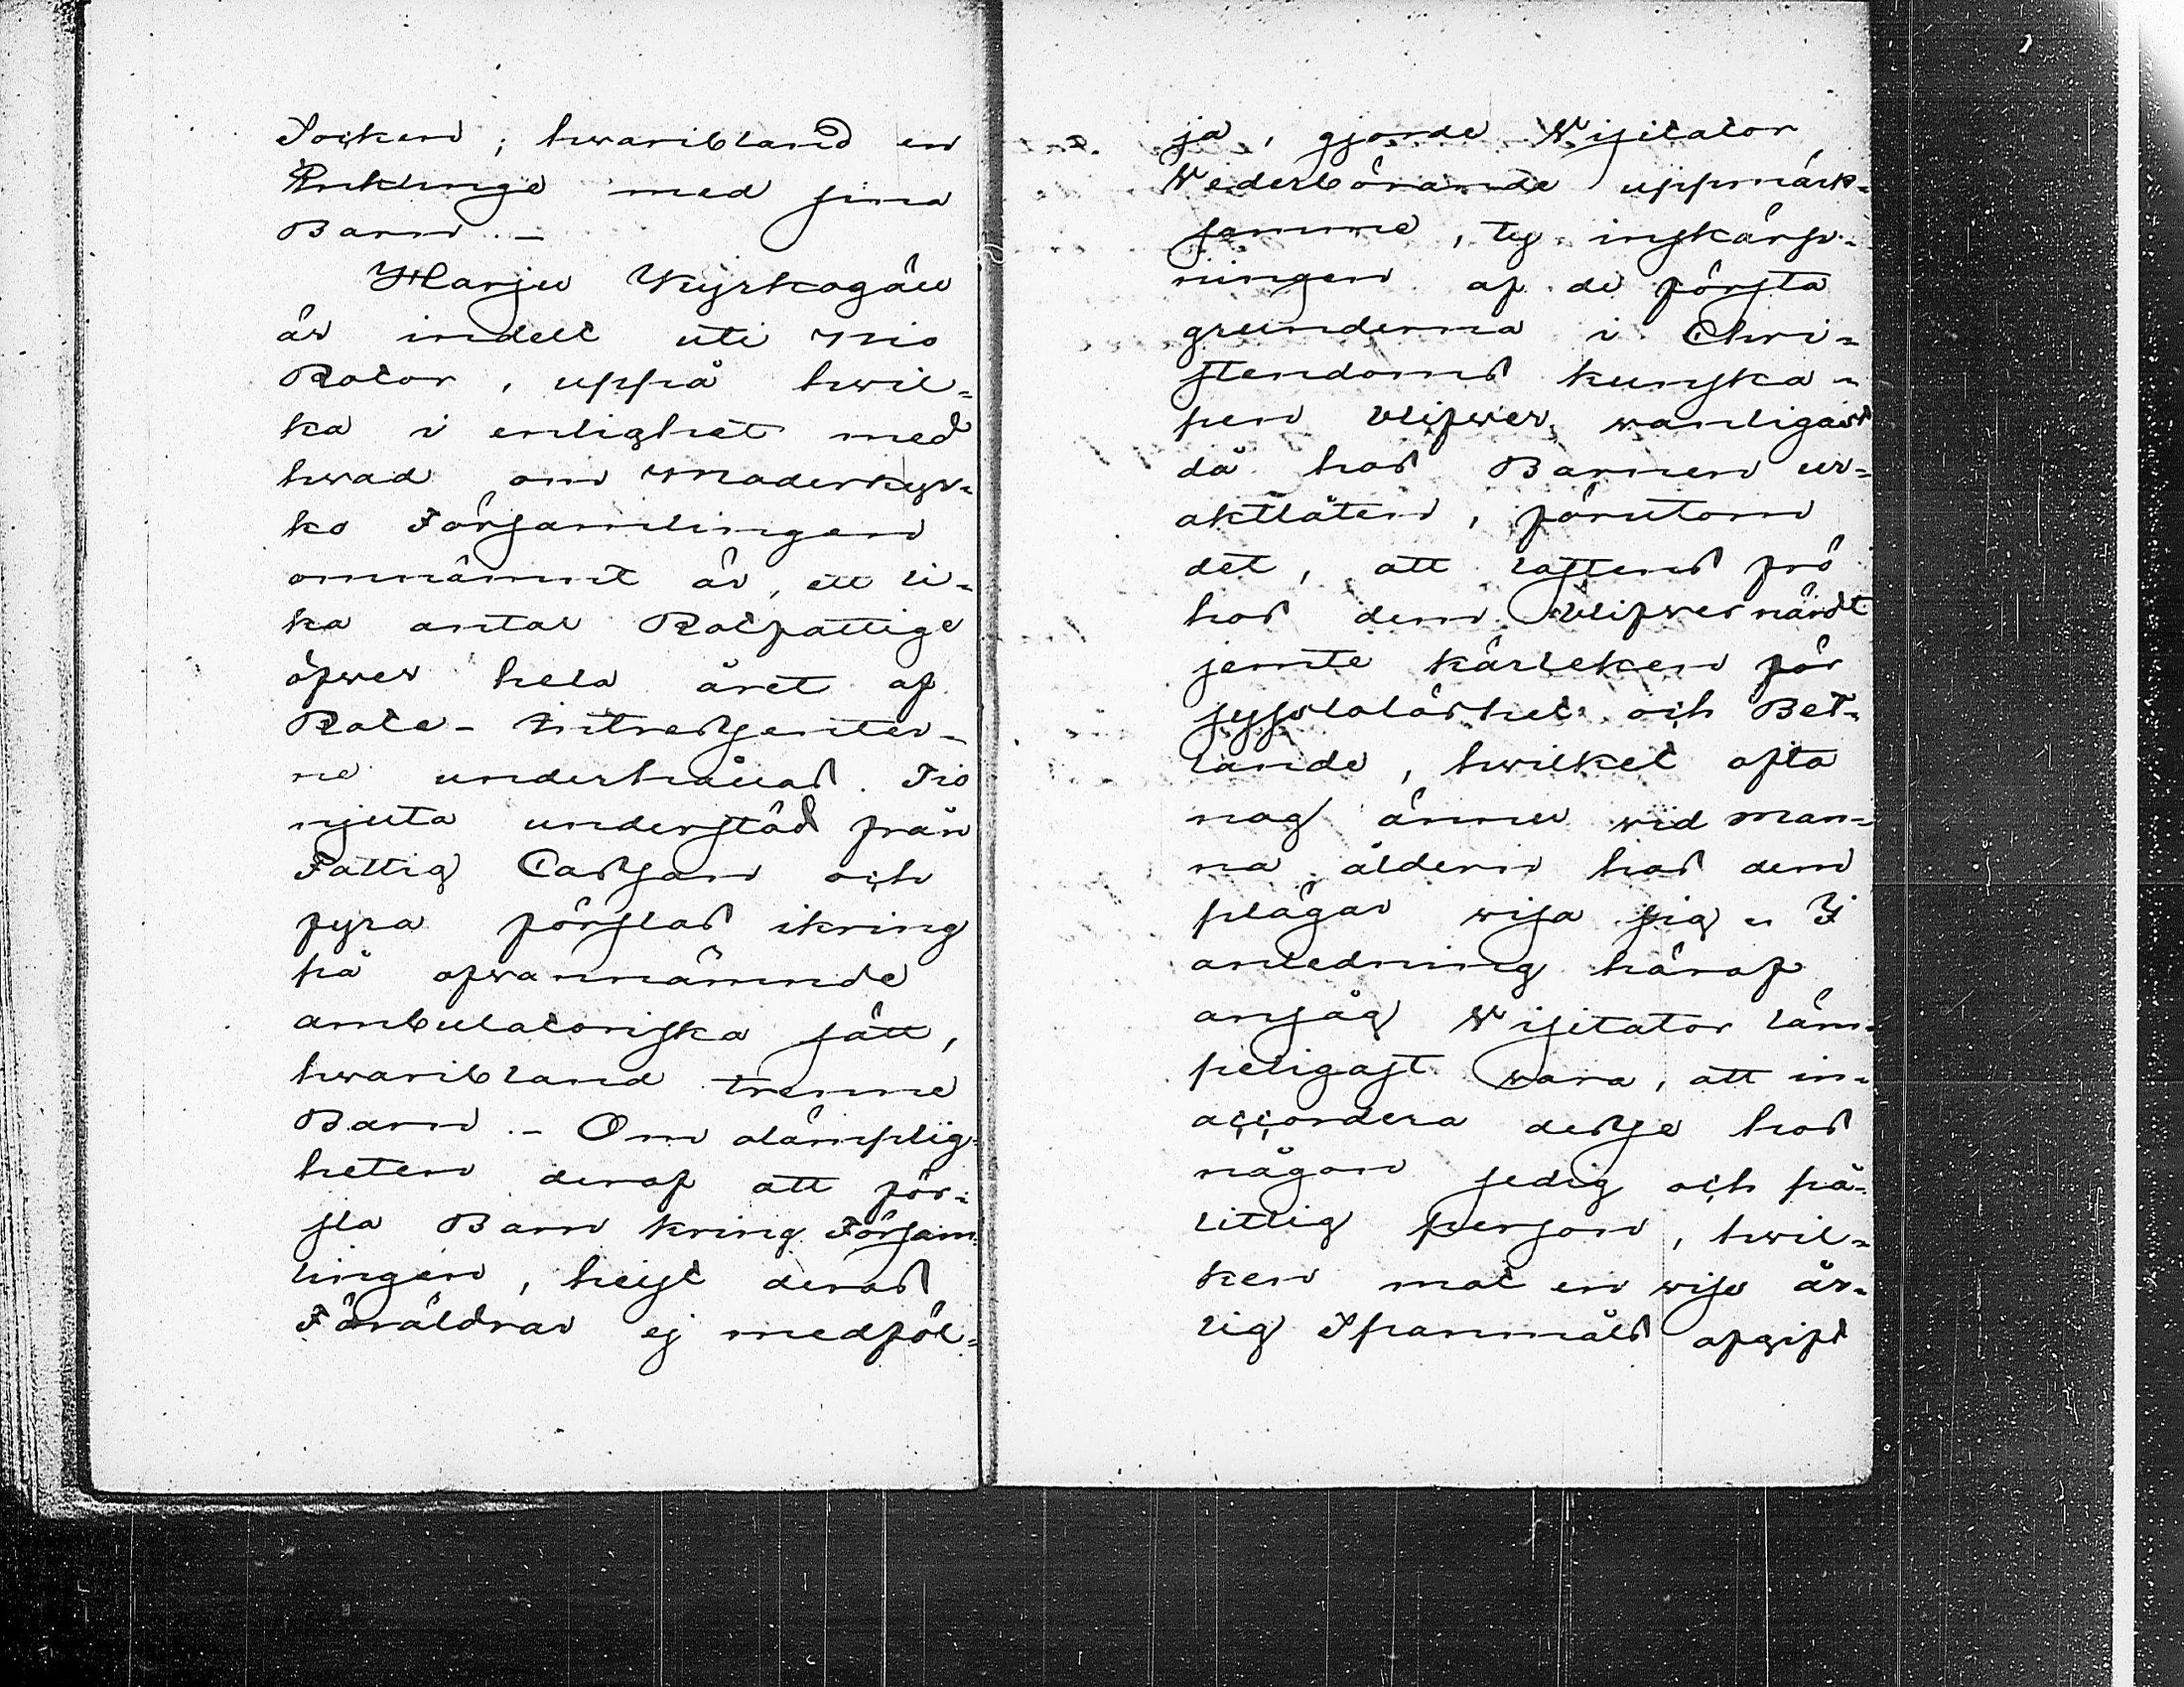 Socken; hwaribland en
Enklinge med sina
Barn. -
Harju Kyrkogäll
är indelt uti nio
Rotor, uppå hwil-
ka i enlighet med
hwad om Moderkyr-
ko Församlingen
omnämnt är, ett li-
ka antal Rotfattige
öfwer hela året af
Rote-Intressenter-
ne underhållas. Tio
njuta understöd från
Fattig Cassan och
fyra förslas ikring
på ofwannämnde
ambulatoriska sätt,
hwaribland trenne
Barn. - Om olämplig-
heten deraf att för-
sla Barn kring Försam-
lingen, helst deras
Föräldrar ej medföl-
ja, gjorde Wisitator
Wederbörande uppmärk-
samme, ty inskärp-
ningen af de första
grunderna i Chri-
stendoms kunska-
pen blifwer wanligast
då hos Barnen ur-
aktlåten, förutom
det, att lastens frö
hos dem blifwer närdt
jemte kärleken för
sysslolöshet och Bet-
lande, hwilket ofta
nog ännu wid man-
na åldern hos dem
plägar wisa sig. I
anledning häraf
ansåg Wisitator läm-
peligast wara, att in-
accordera desse hos
någon sedig och på-
litlig person, hwil-
ken mot en wiss år-
lig Spannmåls afgift